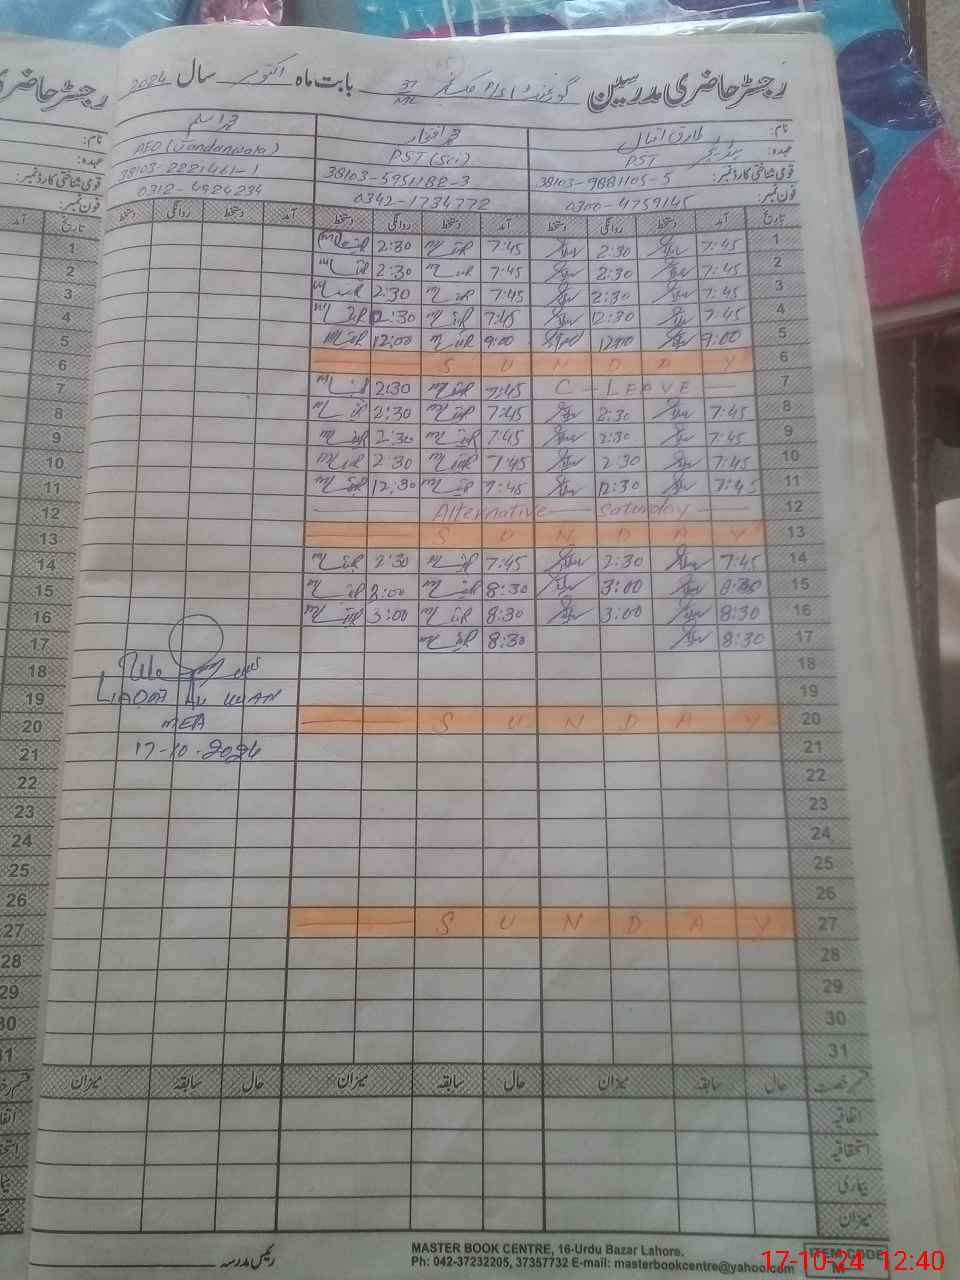 رجسٹر حاضری مدرسین گورنمنٹ بابت ماہ اکتوبر سال 2024
نام: طارق اقبال
محمد اسلم
عہدہ: PST PST (Sci) AEO (Vandanwala)
قومی شناختی کارڈ نمبر: 38103-9881105-5 38103-5951182-3 38103-2221461-1
فون نمبر: 0300-4759145 0342-1734772 0312-4924234
تاریخ آمد دستخط روانگی دستخط آمد دستخط روانگی دستخط آمد دستخط روانگی دستخط
1 7:45 2:30 7:45 2:30
2 7:45 2:30 7:45 2:30
3 7:45 2:30 7:45 2:30
4 7:45 12:30 7:45 2:30
5 9:00 12:00 9:00 12:00
6 S U N D A Y
7 C - LEAVE 7:45 2:30
8 7:45 2:30 7:45 2:30
9 7:45 2:30 7:45 2:30
10 7:45 2:30 7:45 2:30
11 7:45 12:30 7:45 12:30
12 Alternative Saturday
13 S U N D A Y
14 7:45 2:30 7:45 2:30
15 8:30 3:00 8:30 3:00
16 8:30 3:00 8:30 3:00
17 8:30 8:30
18
19
20 S U N D A Y
21
22
23
24
25
26
27 S U N D A Y
28
29
30
31
LIAQAT ALI KHAN
MEA
17-10-2024
قسم رخصت حال سابقہ میزان حال سابقہ میزان حال سابقہ میزان
اتفاقیہ
استحقاقیہ
بیماری
میزان
رئیس مدرسہ
MASTER BOOK CENTRE, 16-Urdu Bazar Lahore.
Ph: 042-37232205, 37357732 E-mail: masterbookcentre@yahoo.com
ITEM CODE
17-10-24 12:40